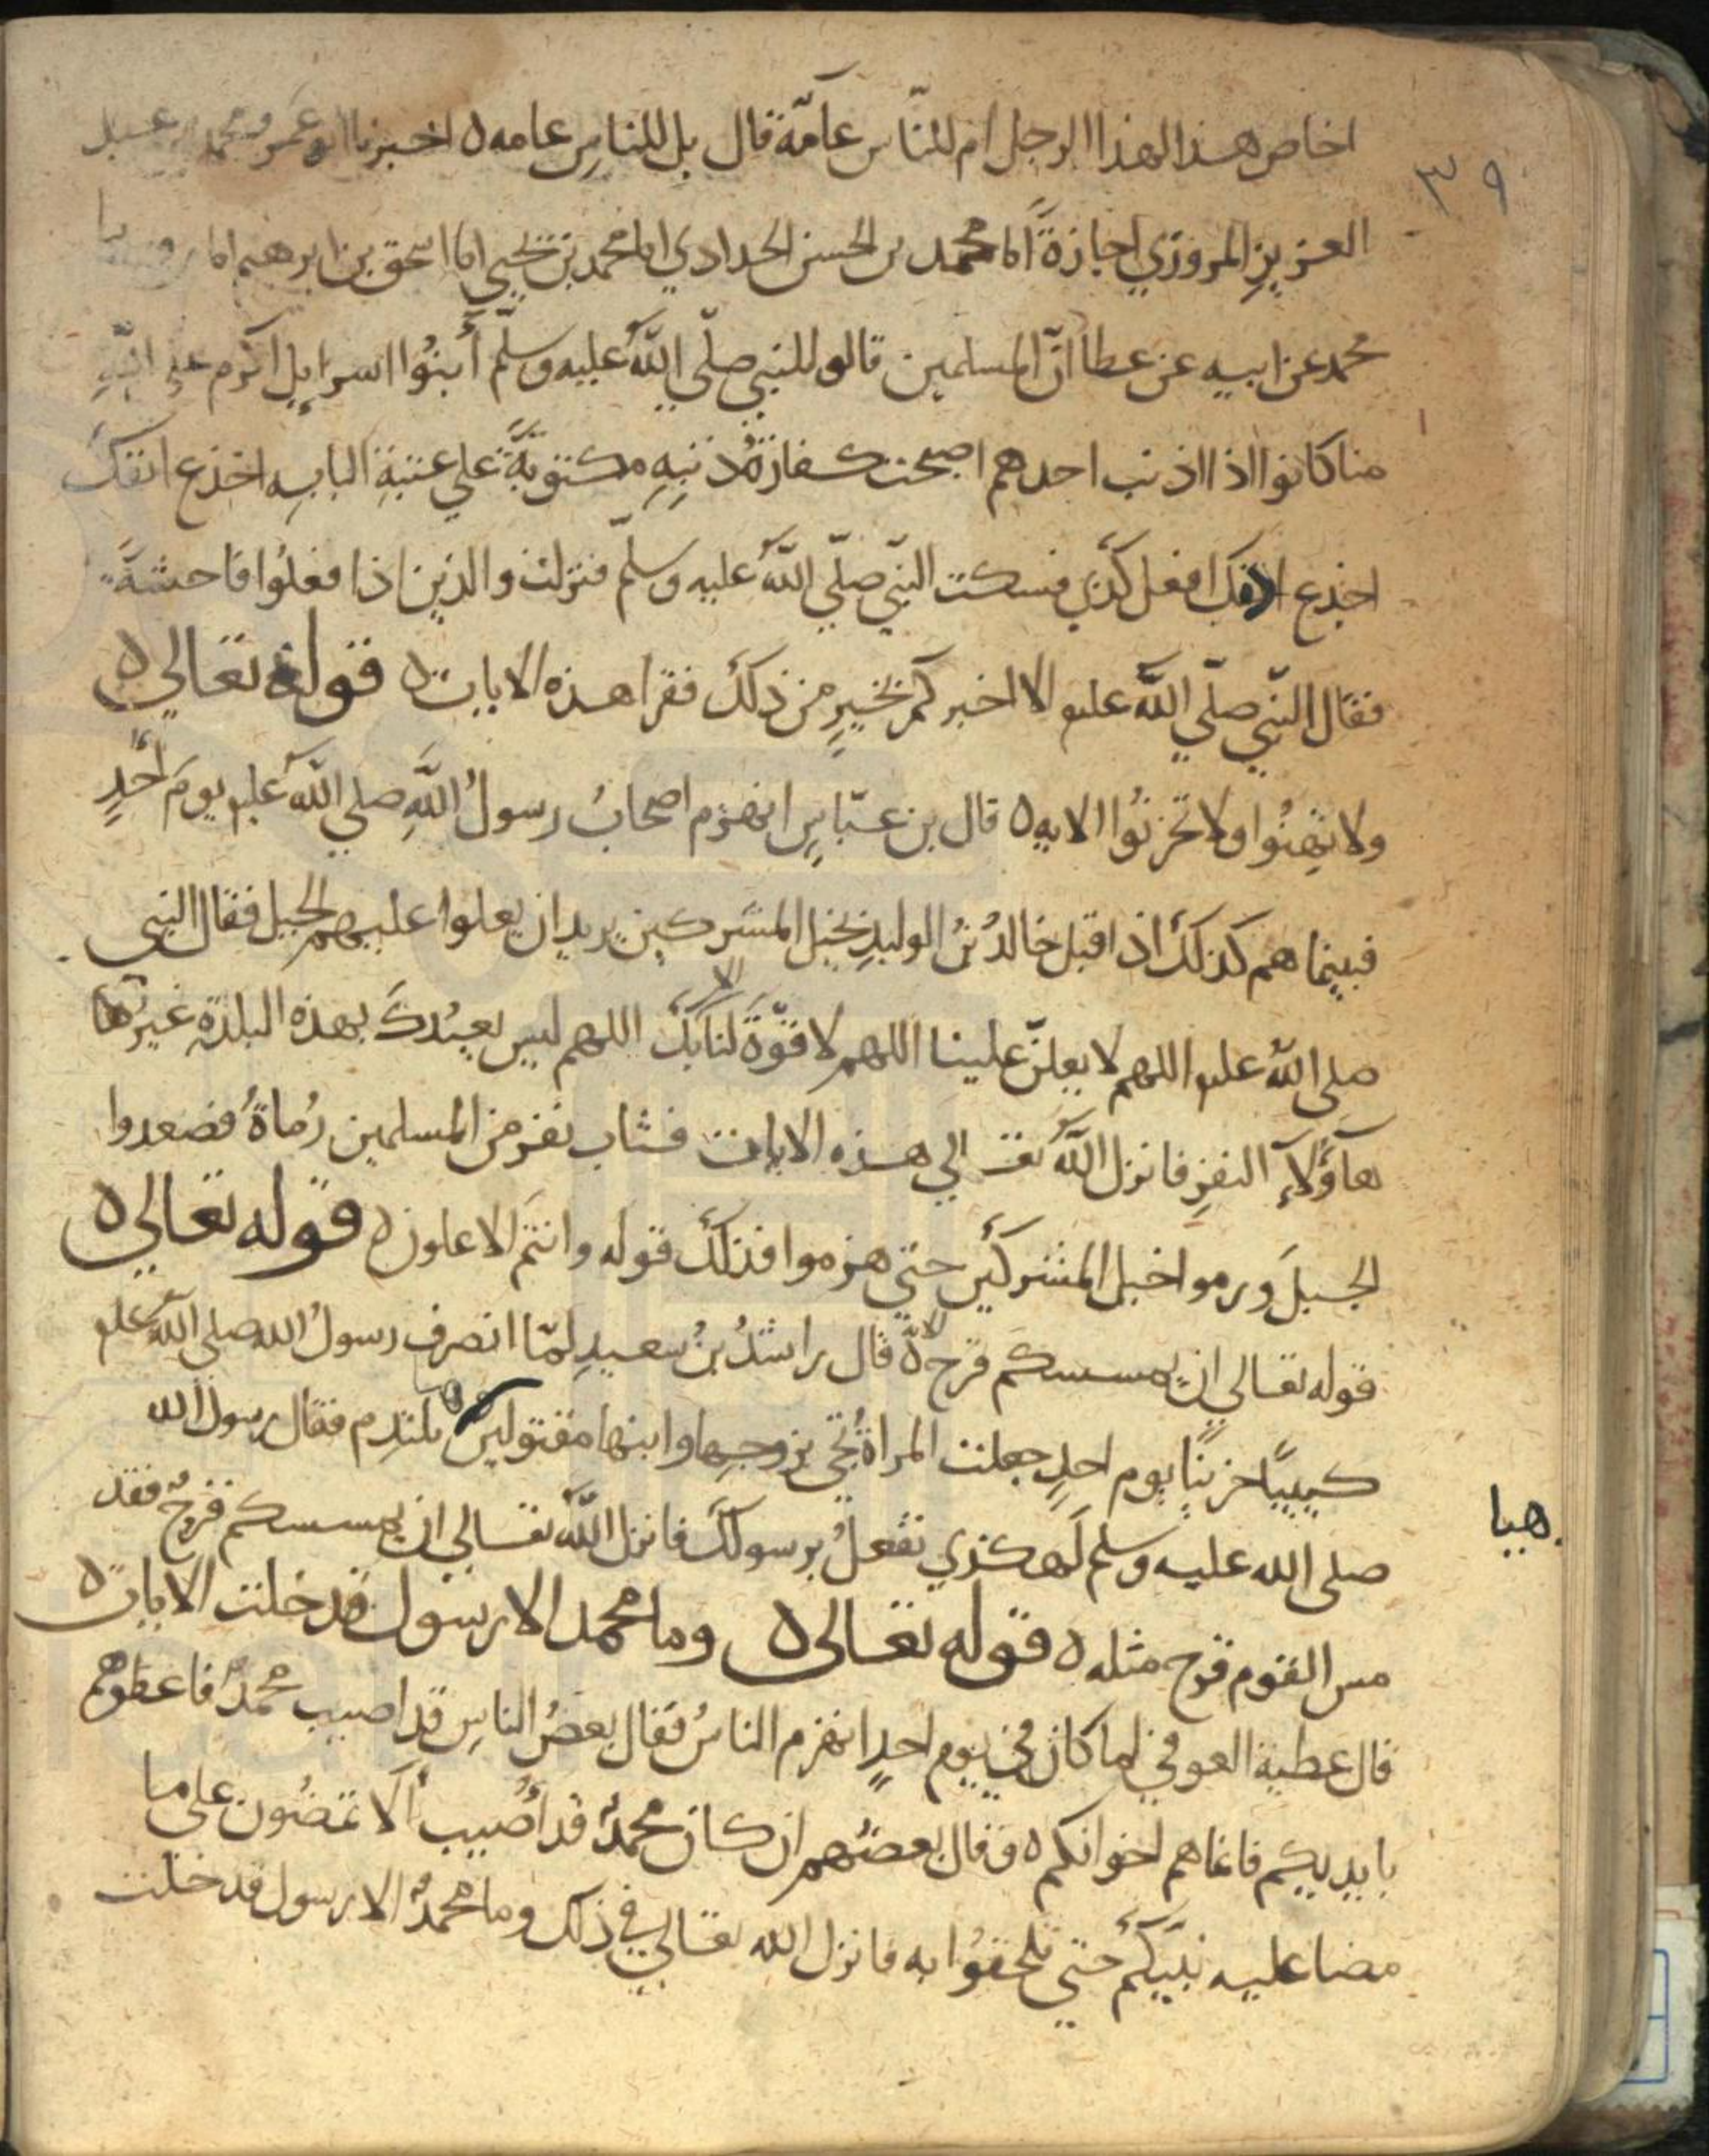 اخاص هذا لهذا الرجل ام للنّاس عامّة قال بل للناسِ عامه ه اخبرنا ابو عمرو محمد بن عبد
٣٩
العزيزِ المروزي اجازةً انا محمد بن الحسن الحدادي انا محمد بن يحيي انا اسحق بن ابرهيم انا روح بنا
محمد عن ابيه عن عطا انّ المسلمين قالو للنبي صلّي اللّه عليه وسلّم أبنُوا اسرايل اكرم علي اللّهِ
منا كانوا اذا اذنب احدهم اصبحت كفارةُ ذنبهِ مكتوبةً علي عتبةِ البابِ اجذع انفك
اجذع اذنك افعل كذي فسكت النبّي صلّي اللّه عليه وسلّم فنزلت والذين اذا فعلُوا فاحشةً
فقال النبّي صلّي اللّه عليه الا اخبركم بخيرٍ من ذلك فقرا هذه الايات ه قوله تعالي ه
ولا تهِنُوا ولا تحزنُوا الايه ه قال بن عبّاسٍ انهزم اصحابُ رسولُ اللّهِ صلي اللّه عليه يومَ أُحدٍ
فبينما هم كذلك اذ اقبل خالدُ بنُ الوليدِ بخيل المشركين يريد ان يعلوا عليهم الجبل فقال النبي
صلي اللّه عليه اللهم لا يعلنّ علينا اللهم لا قوّةَ لنا الا بك اللهم ليس يعبُدكَ بهذه البلدة غيرُ هَا
هآؤلآءِ النفرِ فانزل اللّه تعـ الي هذه الايات فثاب نفر من المسلمين رُماةُ فصعدوا
الجبلَ ورموا خيل المشركين حتي هزموا فذلك قوله وانتم الاعلون ه قوله تعالي ه
قوله تعالي ان يمسسكم قرح الاية قال راشدُ بنُ سعيدِ لمّا انصرف رسولُ الله صلي اللّه عليه
كيبيًا حزينًا يوم احدٍ جعلت المراةُ تجي بزوجها وابنها مقتولين تلتدم فقال رسول الله
هيا
صلي الله عليه وسلم لَهكذي تفعلُ برسولكَ فانزل اللّه تعالي ان يمسسكم قرحٌ فقد
مس القوم قرح مثله ه قوله تعالي ه وما محمد الا رسول قد خلت الايات ه
قال عطية العوفي لما كان في يوم احدٍ انهزم الناسُ فقال بعضُ الناسِ قد اصيب محمدٌ فاعطوهم
بايديكم فانما هم اخوانكم ه وقال بعضُهم ان كان محمدٌ قد أُصيب أَلا تمضُون علي ما
مضا عليه نبيّكم حتي تلحقُوا به فانزل الله تعالي في ذلك وما محمدُ الا رسول قد خلت